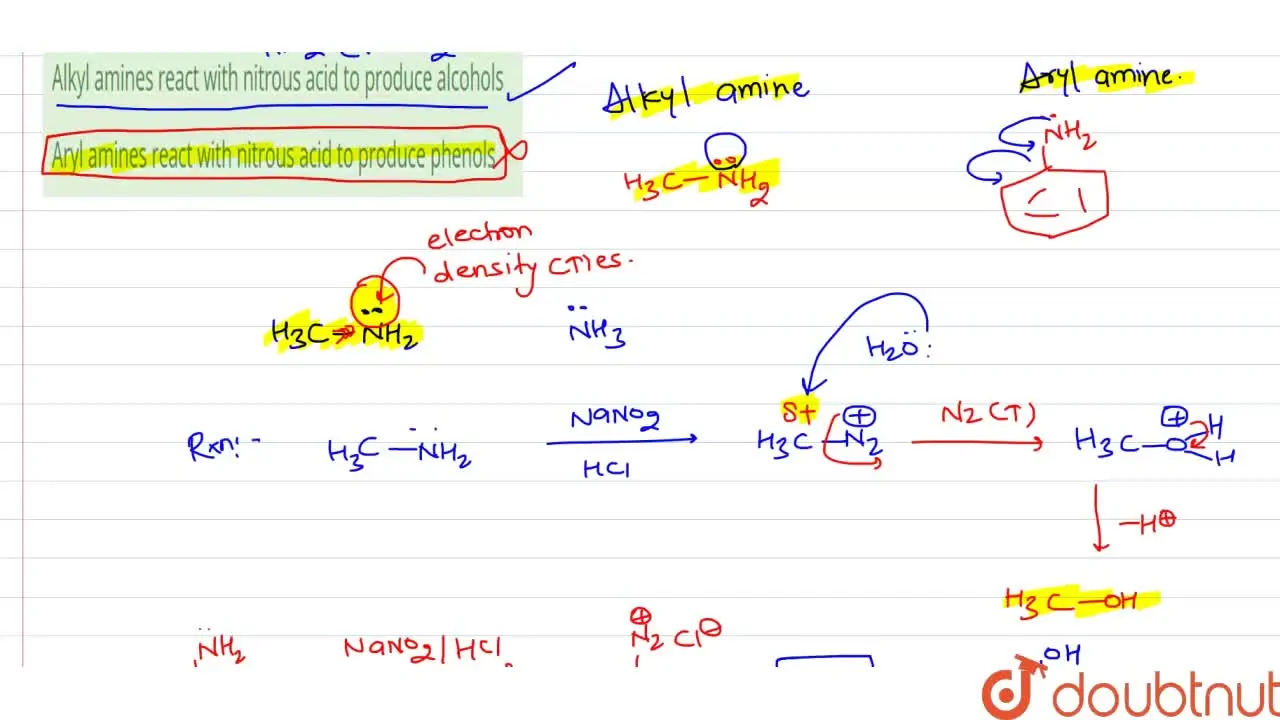 Alkyl amines react with nitrous acid to produce alcohols
Aryl amines react with nitrous acid to produce phenols
Alkyl amine
Aryl amine.
H3C-NH2
NH2
electron
density (↑)es.
H3C NH2
NH3
H2O:
Rxn:-
H3C-NH2
NaNO2
HCl
δ+
H3C-N2
⊕
N2(↑)
H3C-O
⊕
H
H
-H⊕
H3C-OH
NH2
NaNO2/HCl
⊕
N2Cl⊖
OH
doubtnut